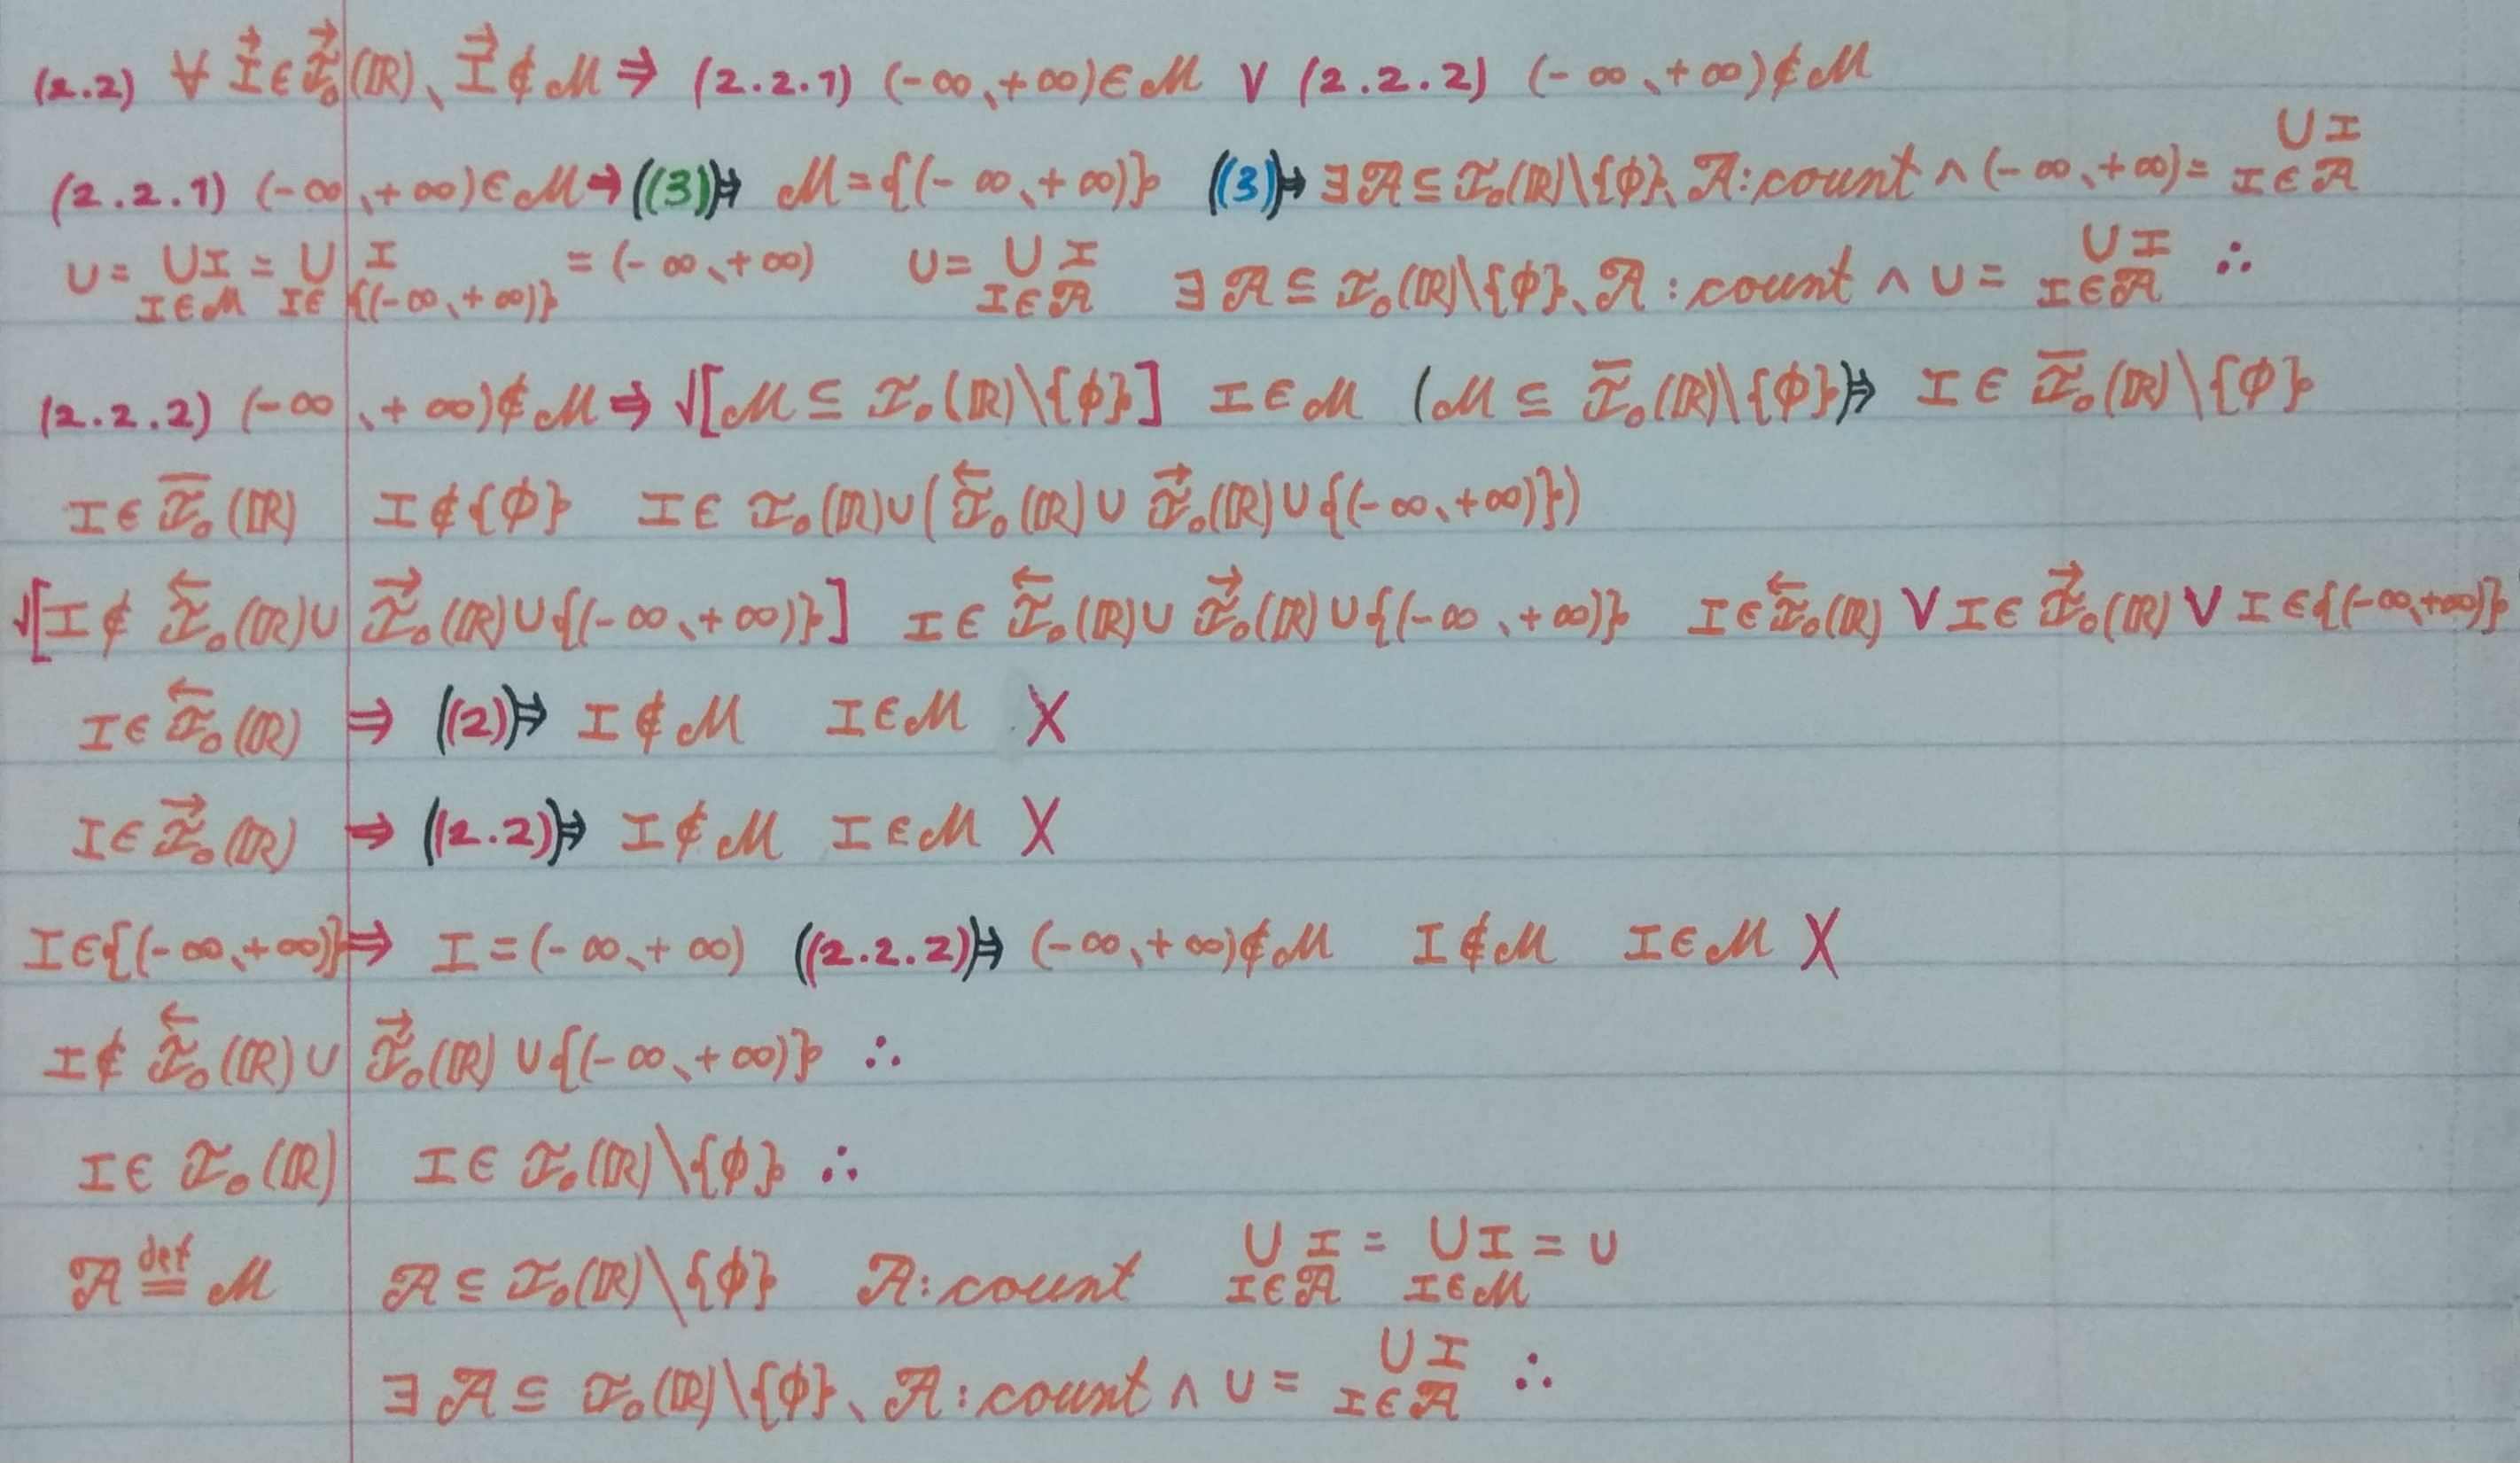 (2.2) ∀ I⃗ ∈ ℐ⃗₀(ℝ)、I⃗ ∉ ℳ ⇒ (2.2.1) (-∞、+∞) ∈ ℳ ∨ (2.2.2) (-∞、+∞) ∉ ℳ
(2.2.1) (-∞、+∞) ∈ ℳ ⇒ ((3)⇒) ℳ = {(-∞、+∞)} ((3)⇒) ∃ 𝒜 ⊆ ℐ₀(ℝ)\{ϕ}、𝒜 : count ∧ (-∞、+∞) = ∪_{I∈𝒜} I
U = ∪_{I∈ℳ} I = ∪_{I∈{(-∞、+∞)}} I = (-∞、+∞) U = ∪_{I∈𝒜} I ∃ 𝒜 ⊆ ℐ₀(ℝ)\{ϕ}、𝒜 : count ∧ U = ∪_{I∈𝒜} I ∴
(2.2.2) (-∞、+∞) ∉ ℳ ⇒ √[ℳ ⊆ ℐ₀(ℝ)\{ϕ}] I ∈ ℳ (ℳ ⊆ ℐ̅₀(ℝ)\{ϕ})⇒ I ∈ ℐ̅₀(ℝ)\{ϕ}
I ∈ ℐ̅₀(ℝ) I ∉ {ϕ} I ∈ ℐ₀(ℝ) ∪ (ℐ⃖₀(ℝ) ∪ ℐ⃗₀(ℝ) ∪ {(-∞、+∞)})
√[I ∉ ℐ⃖₀(ℝ) ∪ ℐ⃗₀(ℝ) ∪ {(-∞、+∞)}] I ∈ ℐ⃖₀(ℝ) ∪ ℐ⃗₀(ℝ) ∪ {(-∞、+∞)} I ∈ ℐ⃖₀(ℝ) ∨ I ∈ ℐ⃗₀(ℝ) ∨ I ∈ {(-∞、+∞)}
I ∈ ℐ⃖₀(ℝ) ⇒ ((2)⇒) I ∉ ℳ I ∈ ℳ X
I ∈ ℐ⃗₀(ℝ) ⇒ ((2.2)⇒) I ∉ ℳ I ∈ ℳ X
I ∈ {(-∞、+∞)} ⇒ I = (-∞、+∞) ((2.2.2)⇒) (-∞、+∞) ∉ ℳ I ∉ ℳ I ∈ ℳ X
I ∉ ℐ⃖₀(ℝ) ∪ ℐ⃗₀(ℝ) ∪ {(-∞、+∞)} ∴
I ∈ ℐ₀(ℝ) I ∈ ℐ₀(ℝ)\{ϕ} ∴
𝒜 ≝ ℳ 𝒜 ⊆ ℐ₀(ℝ)\{ϕ} 𝒜 : count ∪_{I∈𝒜} I = ∪_{I∈ℳ} I = U
∃ 𝒜 ⊆ ℐ₀(ℝ)\{ϕ}、𝒜 : count ∧ U = ∪_{I∈𝒜} I ∴